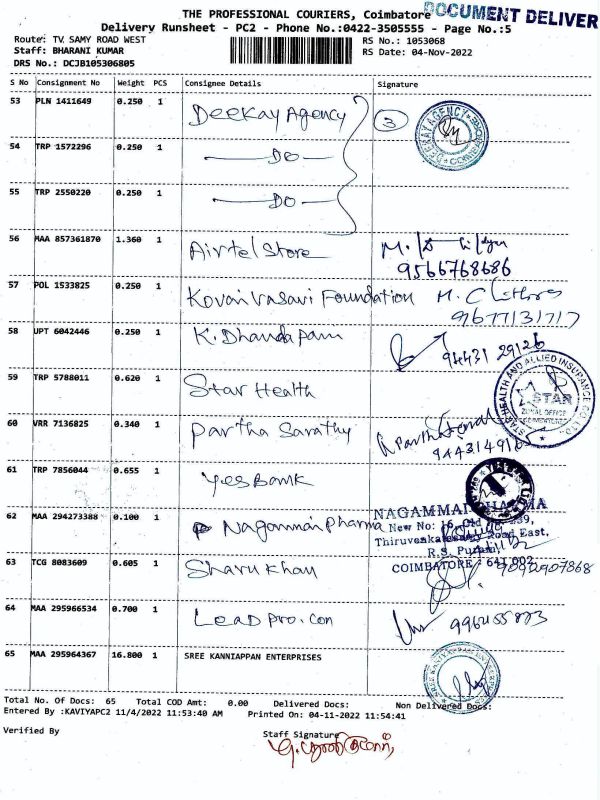 THE PROFESSIONAL COURIERS, Coimbatore DOCUMENT DELIVER
Delivery Runsheet - PC2 - Phone No.:0422-3505555 - Page No.:5
Route: TV. SAMY ROAD WEST RS No.: 1053068
Staff: BHARANI KUMAR RS Date: 04-Nov-2022
DRS No.: DCJB105306805
S No Consignment No Weight PCS Consignee Details Signature
53 PLN 1411649 0.250 1 Deekay Agency 3
54 TRP 1572296 0.250 1 —DO—
55 TRP 2550220 0.250 1 —DO—
56 MAA 857361870 1.360 1 Airtel Store
9566768686
57 POL 1533825 0.250 1 Kovai Vasavi Foundation
9677131717
58 UPT 6042446 0.250 1 K. Dhandapani
94431 29126
STAR HEALTH AND ALLIED INSURANCE CO. LTD.
STAR
ZONAL OFFICE
59 TRP 5788011 0.620 1 Star Health
60 VRR 7136825 0.340 1 Partha Sarathy
61 TRP 7856044 0.655 1 Yes Bank
62 MAA 294273388 0.100 1 Nagammai Pharma
NAGAMMAI PHARMA
New No: 16, Old No: 239,
Thiruvenkatasamy Road East,
R.S. Puram,
COIMBATORE - 641 002
63 TCG 8083609 0.605 1 Sharukhan
64 MAA 295966534 0.700 1 Lead pro.con
65 MAA 295964367 16.800 1 SREE KANNIAPPAN ENTERPRISES
Total No. Of Docs: 65 Total COD Amt: 0.00 Delivered Docs: Non Delivered Docs:
Entered By :KAVIYAPC2 11/4/2022 11:53:40 AM Printed On: 04-11-2022 11:54:41
Verified By Staff Signature